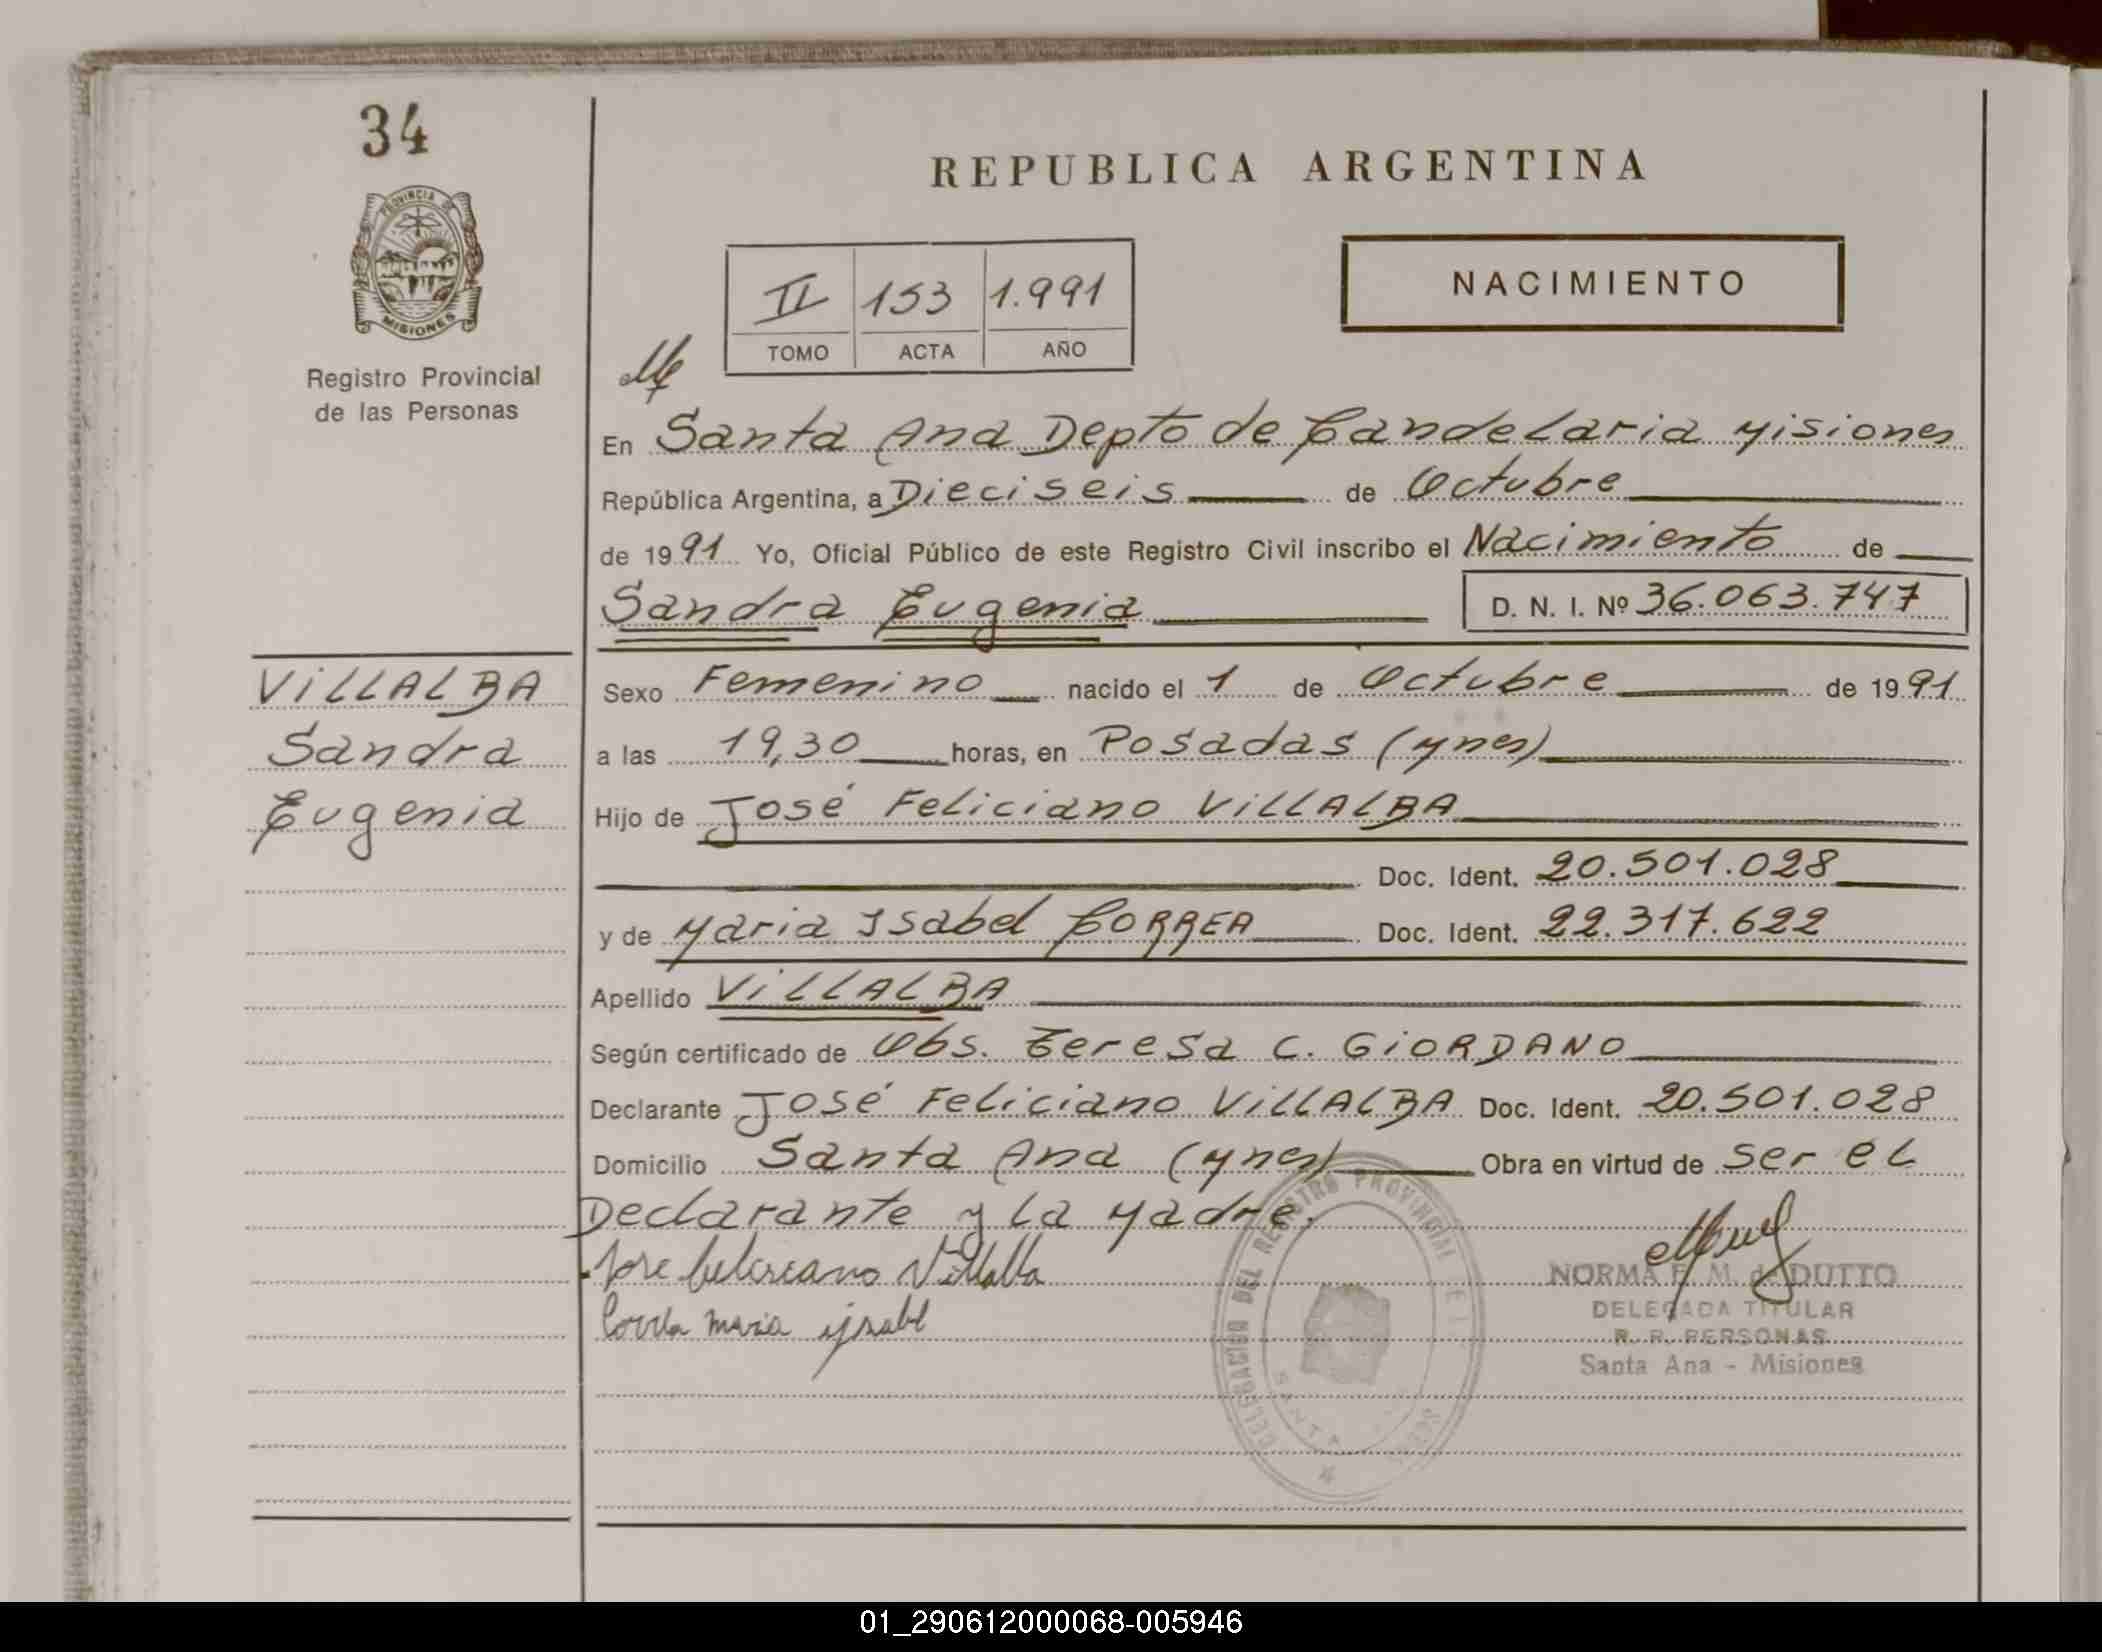 34
PROVINCIA DE
MISIONES
Registro Provincial
de las Personas
REPUBLICA ARGENTINA
NACIMIENTO
II 153 1.991
TOMO ACTA AÑO
En Santa Ana Depto de Candelaria Misiones
República Argentina, a Dieciseis de Octubre
de 1991 Yo, Oficial Público de este Registro Civil inscribo el Nacimiento de
Sandra Eugenia D. N. I. Nº 36.063.747
VILLALBA
Sandra
Eugenia
Sexo Femenino nacido el 1 de Octubre de 1991
a las 19,30 horas, en Posadas (Mnes)
Hijo de José Feliciano VILLALBA
Doc. Ident. 20.501.028
y de Maria Isabel CORREA Doc. Ident. 22.317.622
Apellido VILLALBA
Según certificado de Obs. Teresa C. GIORDANO
Declarante José Feliciano VILLALBA Doc. Ident. 20.501.028
Domicilio Santa Ana (Mnes) Obra en virtud de ser el
Declarante y la Madre.
Jose feliciano Villalba
Correa maria ysabel
DELEGACION DEL REGISTRO PROVINCIAL DE L
SANTA
NORMA E. M. de DUTTO
DELEGADA TITULAR
R. P. PERSONAS
Santa Ana - Misiones
01_290612000068-005946